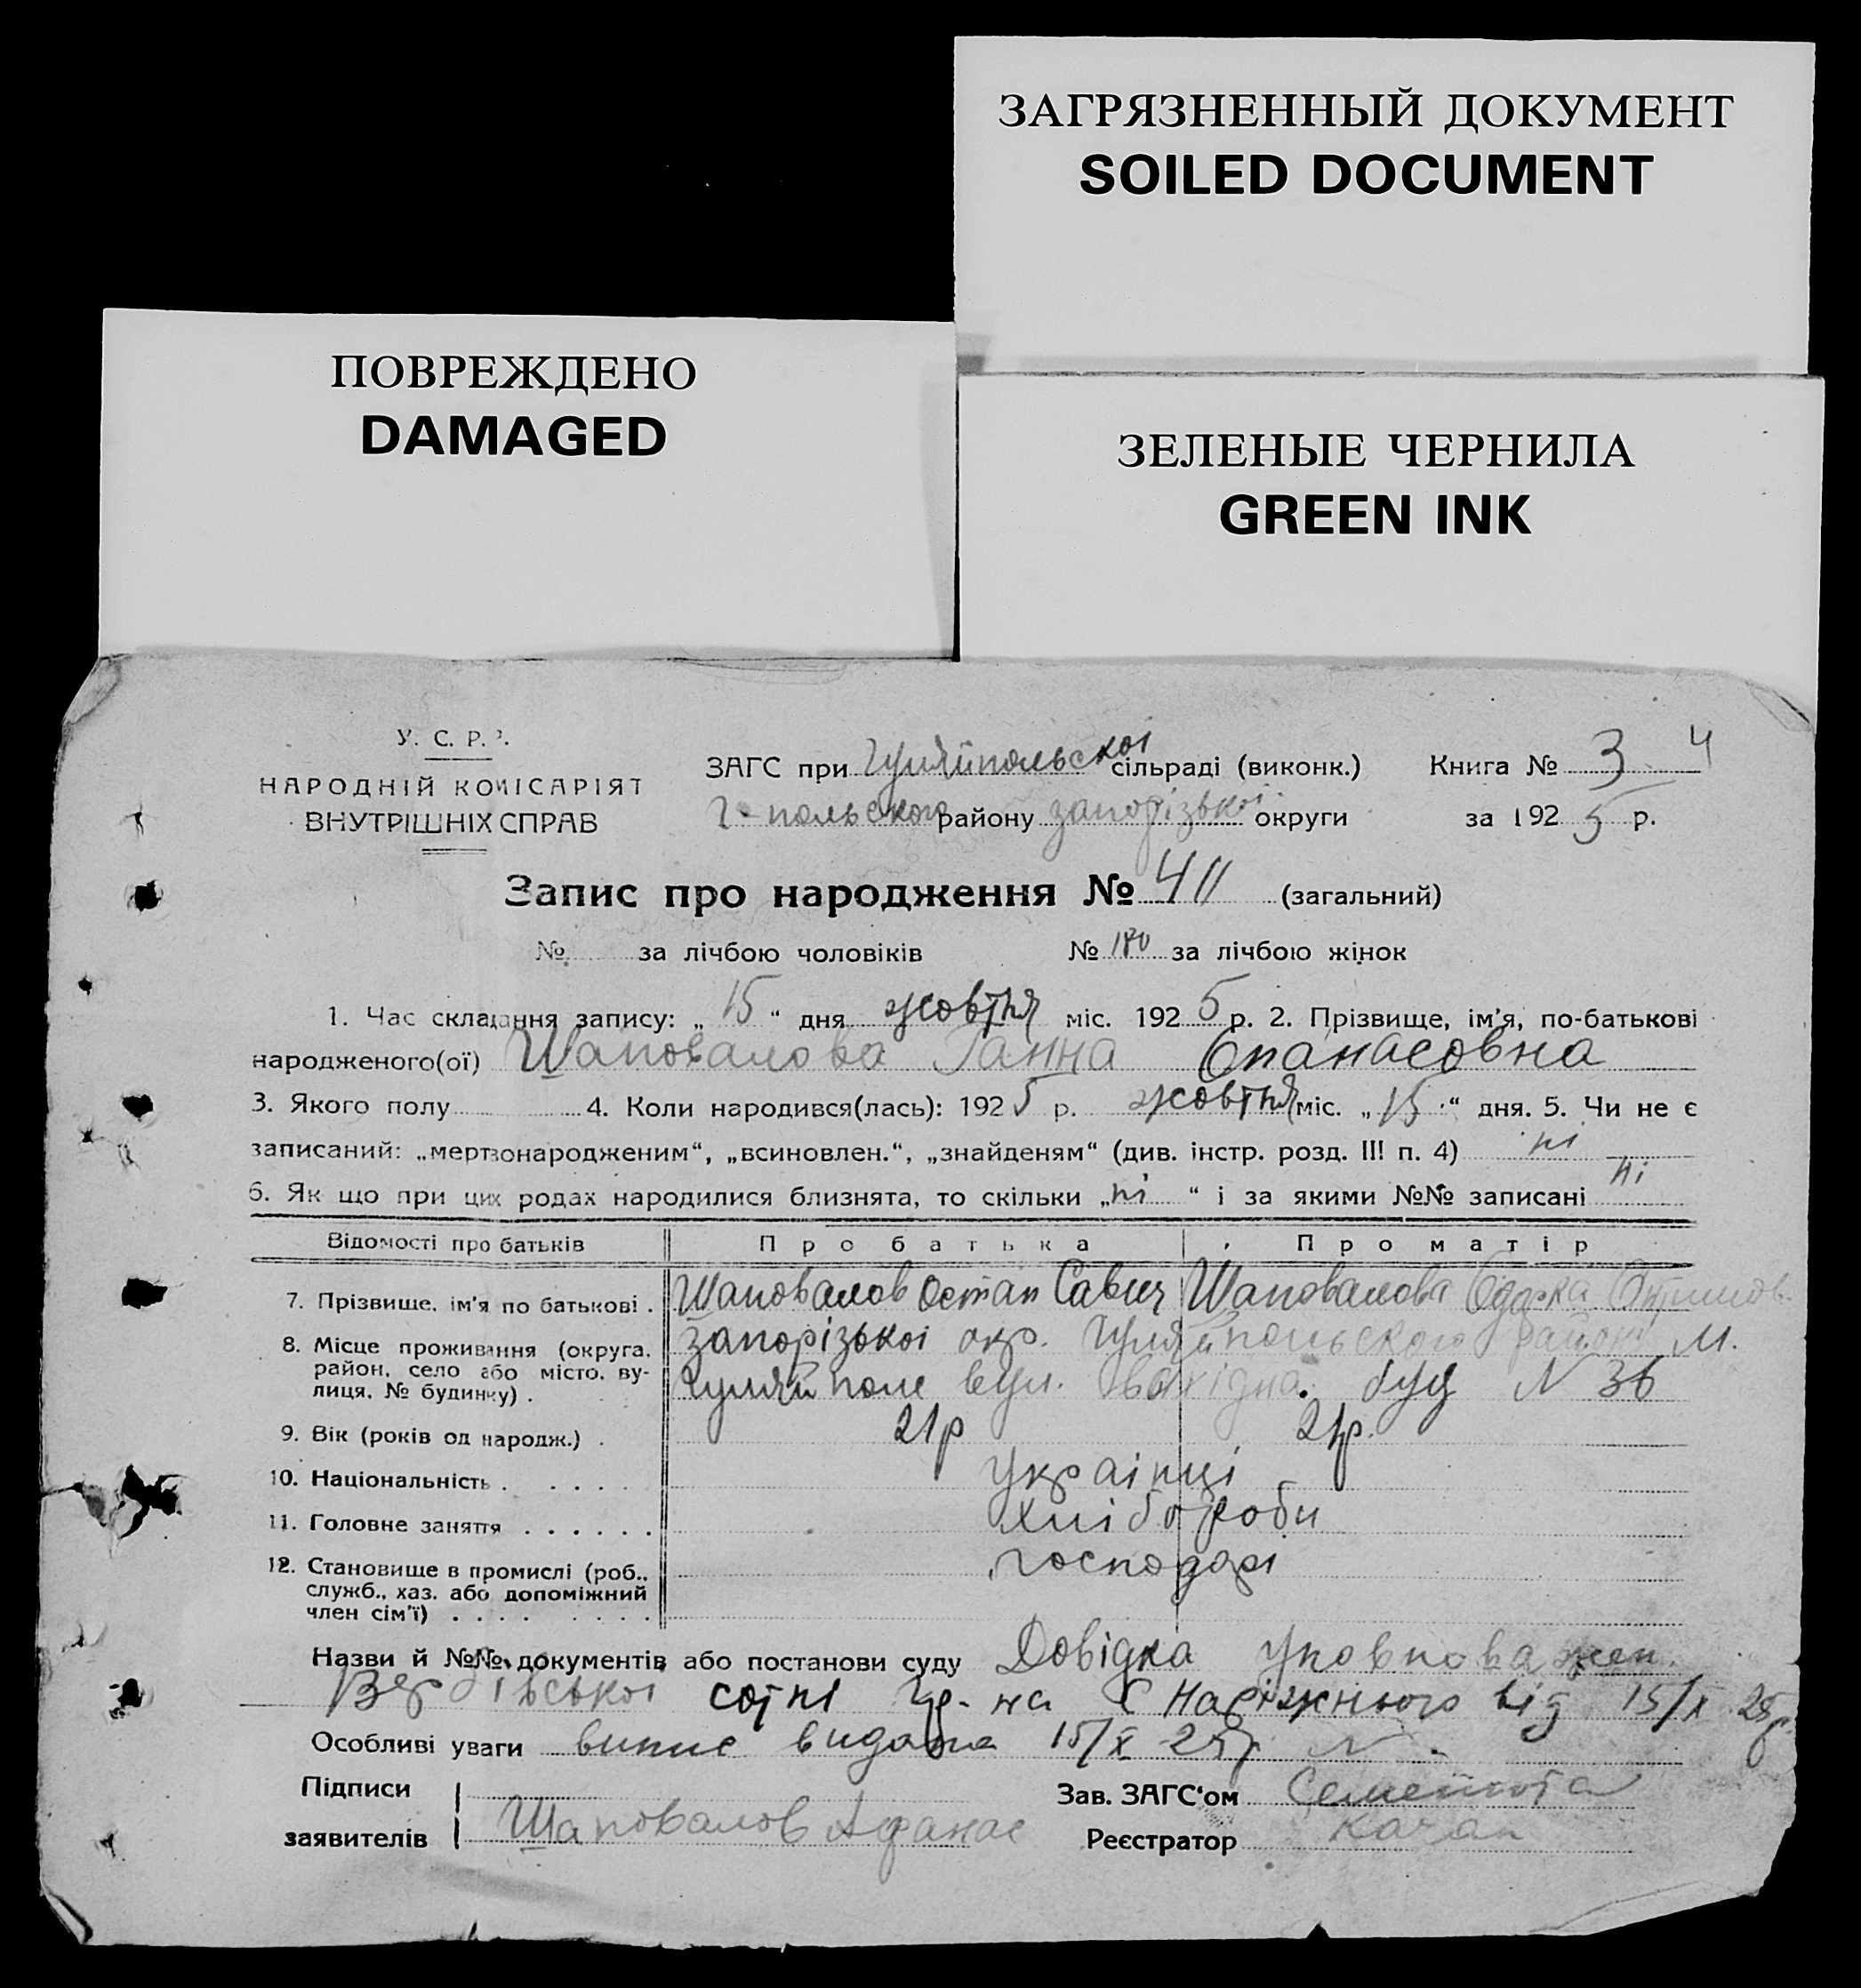 ЗАГРЯЗНЕННЫЙ ДОКУМЕНТ
SOILED DOCUMENT
ПОВРЕЖДЕНО
DAMAGED
ЗЕЛЕНЫЕ ЧЕРНИЛА
GREEN INK
У. С. Р. Р.
НАРОДНІЙ КОМІСАРІЯТ
ВНУТРІШНІХ СПРАВ
ЗАГС при Гуляйпольскоі сільраді (виконк.) Книга № 3 4
Г-польского району запорізькоі округи за 1925 р.
Запис про народження № 411 (загальний)
№ за лічбою чоловіків № 180 за лічбою жінок
1. Час складання запису: „15“ дня жовтня міс. 1925 р. 2. Прізвище, ім'я, по-батькові
народженого(ої) Шаповалова Ганна Опанасовна
3. Якого полу 4. Коли народився(лась): 1925 р. жовтня міс. „15“ дня. 5. Чи не є
записаний: „мертвонародженим“, „всиновлен.“, „знайденям“ (див. інстр. розд. III п. 4) ні
6. Як що при цих родах народилися близнята, то скільки „ні“ і за якими №№ записані ні
Відомості про батьків Про батька Про матір
7. Прізвище, ім'я по батькові . Шаповалов Остап Савич Шаповалова Одарка
8. Місце проживання (округа, район, село або місто, вулиця, № будинку) . запорізькоі окр. Гуляйпольского району М.
Гуляй поле вул. буд N 36
9. Вік (років од народж.) . 21р 21р.
10. Національність . . . . . . українці
11. Головне заняття . . . . . . хліботроби
12. Становище в промислі (роб., служб., хаз. або допоміжний член сім'ї) . . . . . . . . господарі
Назви й №№ документів або постанови суду Довідка Уповноважен.
Вербівськоі сотні гр-на С Наріжнього від 15/X 25р.
Особливі уваги випис видана 15/X 25р N
Підписи Зав. ЗАГС'ом
заявителів Шаповалов Афанас Реєстратор Качан